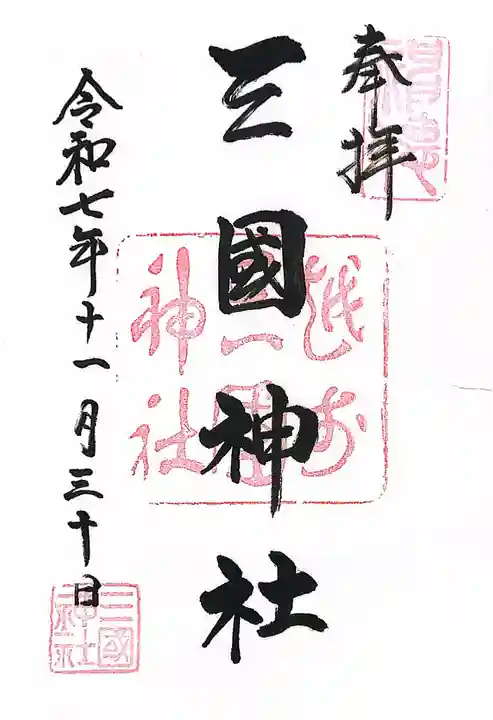 奉拝
三國神社
越前
三國
神社
令和七年十一月三十日
三國
神社